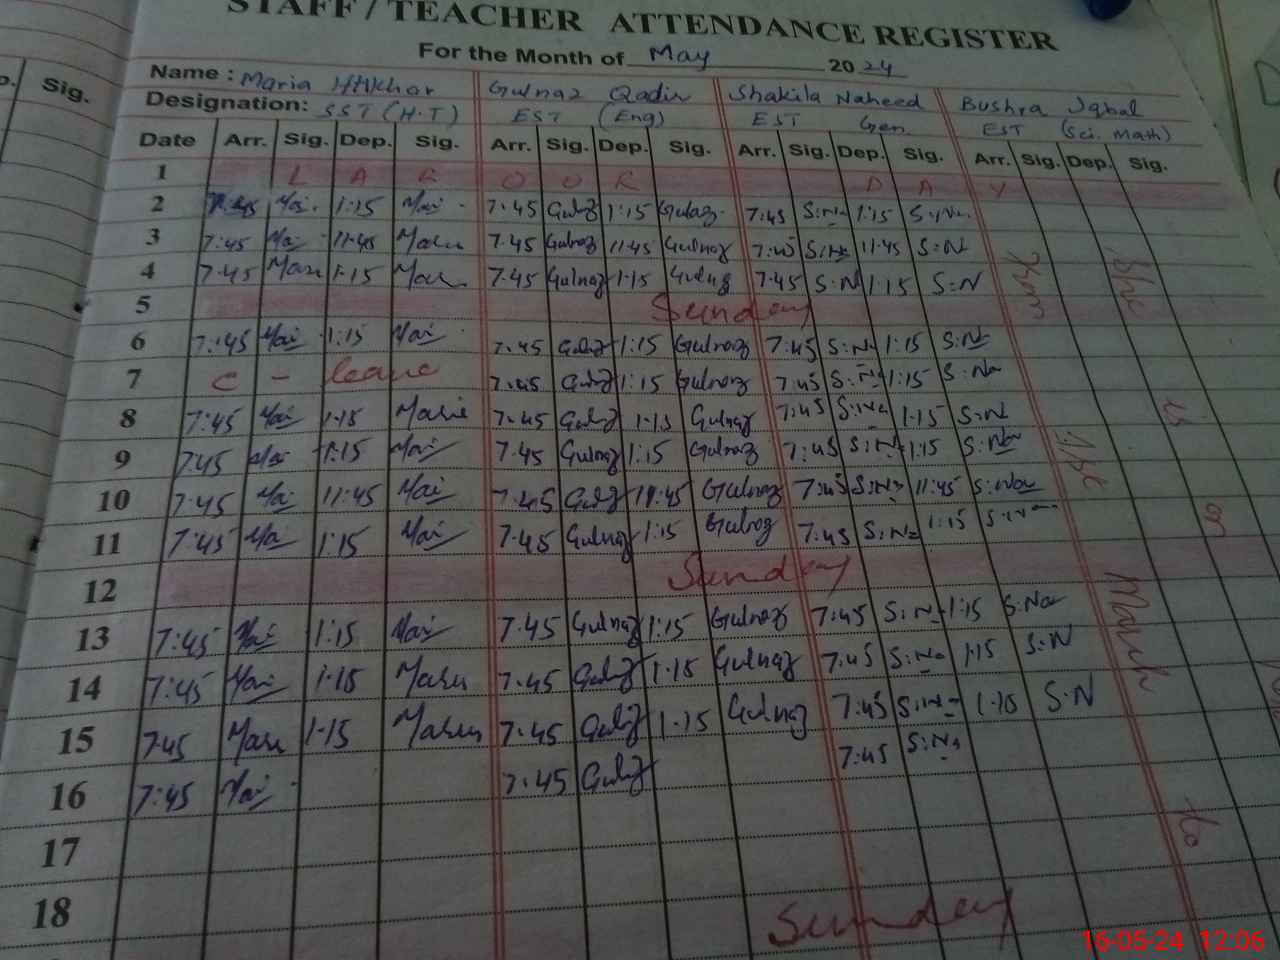 STAFF / TEACHER ATTENDANCE REGISTER
For the Month of May 2024
Sig.
Name : Maria Gulnaz Qadir Shakila Naheed Bushra Iqbal
Designation: SST (H.T) EST (Eng) EST Gen EST (Sci. Math)
Date Arr. Sig. Dep. Sig. Arr. Sig. Dep. Sig. Arr. Sig. Dep. Sig. Arr. Sig. Dep. Sig.
1 L A B O U R D A Y
2 7:45 Mai 1:15 Mai 7:45 Gulz 1:15 Gulnaz 7:45 S:Na 1:15 S:Na
3 7:45 Mai 11:45 Maria 7:45 Gulnaz 11:45 Gulnaz 7:45 S:Na 11:45 S:N
4 7:45 Maria 1:15 Maria 7:45 Gulnaz 1:15 Gulnaz 7:45 S:N 1:15 S:N
5 Sunday
6 7:45 Mai 1:15 Mai 7:45 Gulz 1:15 Gulnaz 7:45 S:Na 1:15 S:Na
7 C - leave 7:45 Gulz 1:15 Gulnaz 7:45 S:Na 1:15 S:Na
8 7:45 Mai 1:15 Maria 7:45 Gulz 1:15 Gulnaz 7:45 S:Na 1:15 S:Na
9 7:45 Mai 1:15 Mai 7:45 Gulnaz 1:15 Gulnaz 7:45 S:Na 1:15 S:Na
10 7:45 Mai 11:45 Mai 7:45 Gulz 11:45 Gulnaz 7:45 S:Na 11:45 S:Na
11 7:45 Mai 1:15 Mai 7:45 Gulnaz 1:15 Gulnaz 7:45 S:Na 1:15 S:Na
12 Sunday
13 7:45 Mai 1:15 Mai 7:45 Gulnaz 1:15 Gulnaz 7:45 S:Na 1:15 S:Na
14 7:45 Mai 1:15 Maria 7:45 Gulz 1:15 Gulnaz 7:45 S:Na 1:15 S:N
15 7:45 Maria 1:15 Maria 7:45 Gulz 1:15 Gulnaz 7:45 S:Na 1:15 S.N
16 7:45 Mai 7:45 Gulz 7:45 S:Na
17
18
Sunday
She is on
from March to
16-05-24 12:06